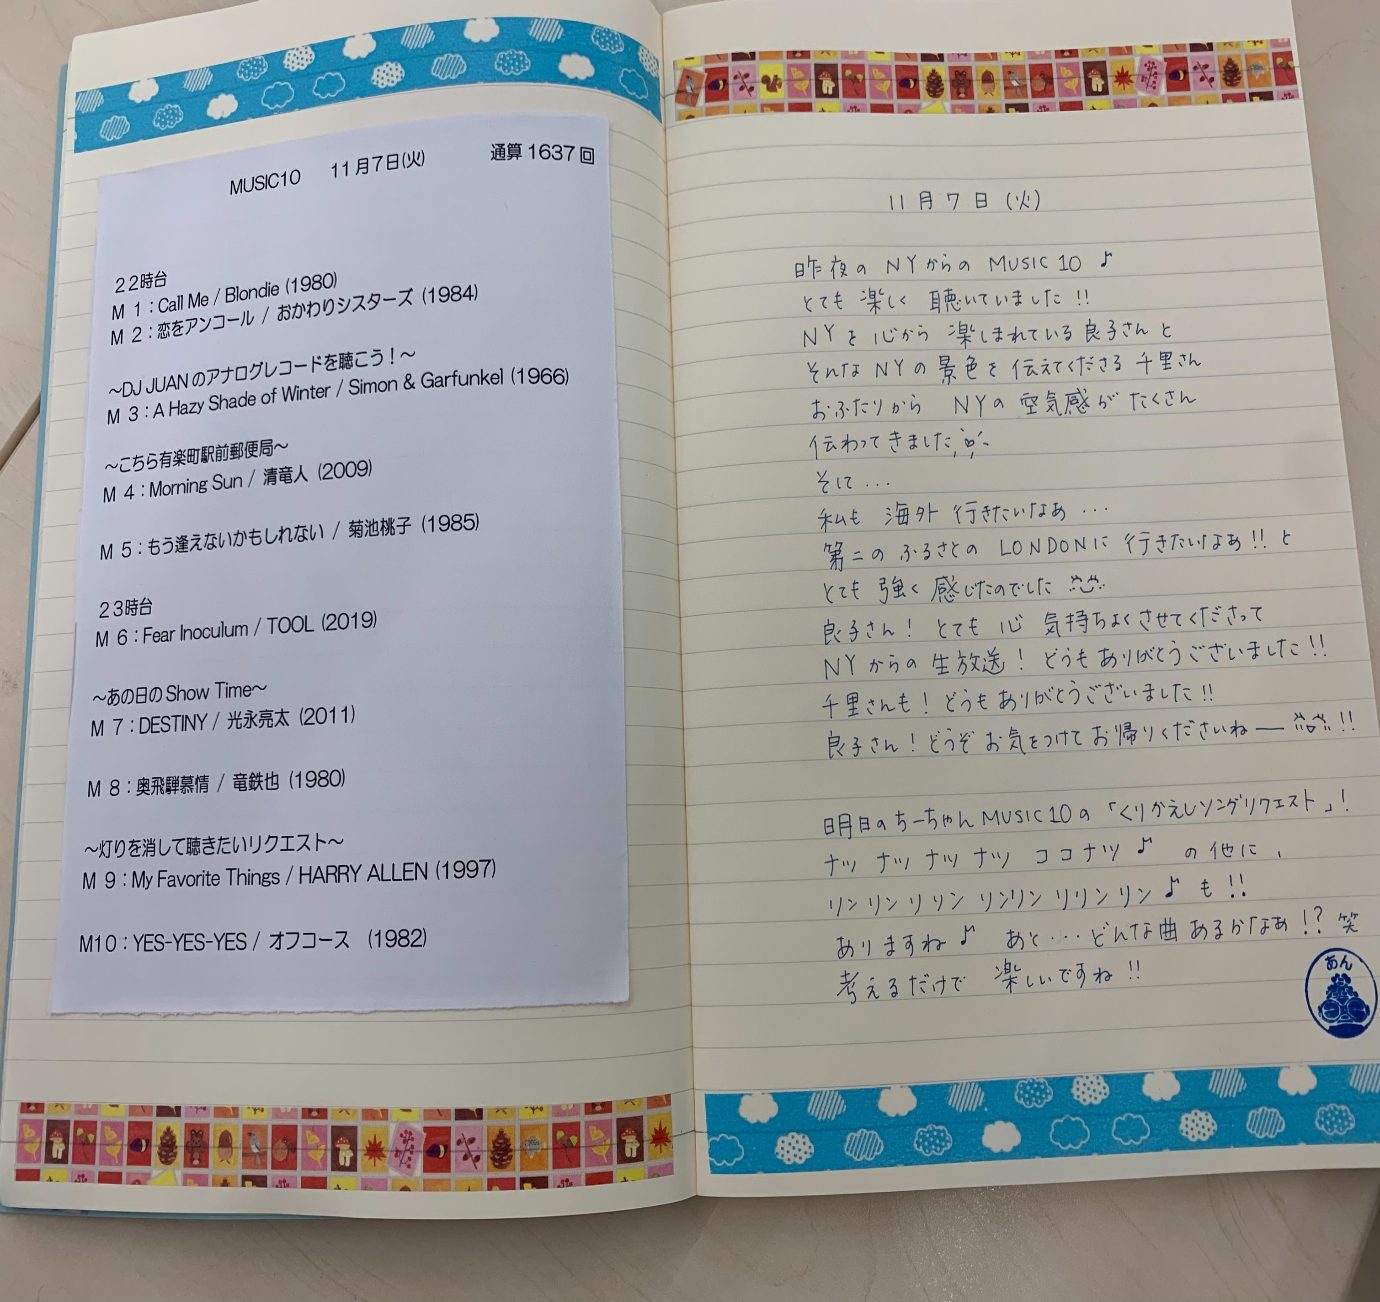 MUSIC10 11月7日(火) 通算1637回
22時台
M 1：Call Me / Blondie (1980)
M 2：恋をアンコール / おかわりシスターズ (1984)
～DJ JUANのアナログレコードを聴こう！～
M 3：A Hazy Shade of Winter / Simon & Garfunkel (1966)
～こちら有楽町駅前郵便局～
M 4：Morning Sun / 清竜人 (2009)
M 5：もう逢えないかもしれない / 菊池桃子 (1985)
23時台
M 6：Fear Inoculum / TOOL (2019)
～あの日のShow Time～
M 7：DESTINY / 光永亮太 (2011)
M 8：奥飛騨慕情 / 竜鉄也 (1980)
～灯りを消して聴きたいリクエスト～
M 9：My Favorite Things / HARRY ALLEN (1997)
M10：YES-YES-YES / オフコース (1982)
11月7日(火)
昨夜の NYからの MUSIC 10 ♪
とても 楽しく 聴いていました!!
NYを 心から 楽しまれている 良子さんと
そんなNYの景色を 伝えてくださる 千里さん
おふたりから NYの空気感が たくさん
伝わってきました
そして...
私も 海外 行きたいなぁ...
第二の ふるさとの LONDONに 行きたいなぁ!! と
とても 強く 感じたのでした
良子さん! とても 心 気持ちよくさせてくださって
NYからの生放送! どうもありがとうございました!!
千里さんも! どうもありがとうございました!!
良子さん! どうぞ お気をつけて お帰りくださいねー!!
明日のちーちゃんMUSIC10の「くりかえしソングリクエスト」!
ナツ ナツ ナツ ナツ ココナツ ♪ の他に、
リンリンリリン リンリン リリンリン♪ も!!
ありますね♪ あと・・・どんな曲あるかなぁ!? 笑
考えるだけで 楽しいですね!!
あん